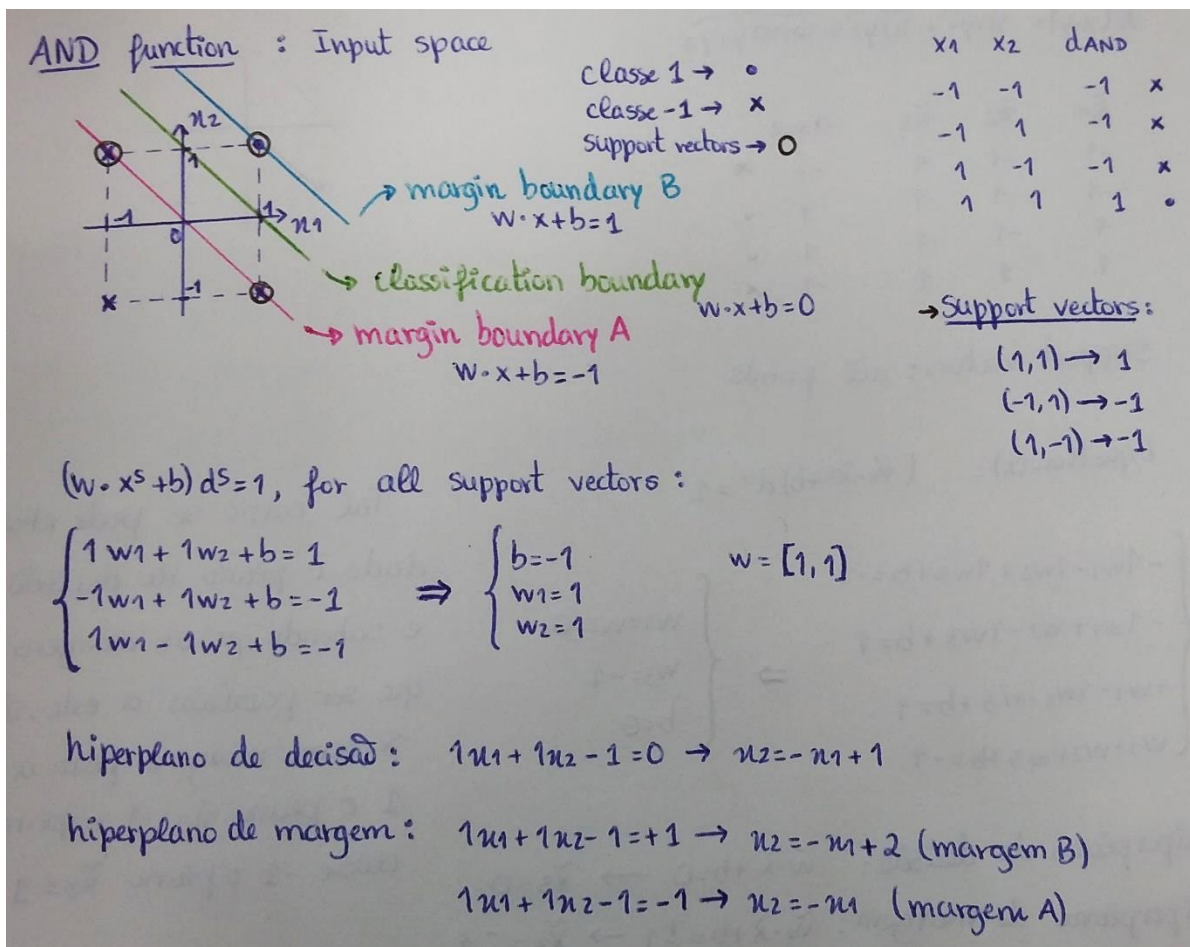 AND function : Input space
classe 1 → •
classe -1 → x
support vectors → O
x1 x2 dAND
-1 -1 -1 x
-1 1 -1 x
1 -1 -1 x
1 1 1 •
x2
1
-1
0
1
x1
-1
→ margin boundary B
w·x+b=1
→ classification boundary
w·x+b=0
→ margin boundary A
w·x+b=-1
→ support vectors:
(1,1) → 1
(-1,1) → -1
(1,-1) → -1
(w·x^s+b) d^s=1, for all support vectors :
{ 1w1 + 1w2 + b = 1
-1w1 + 1w2 + b = -1
1w1 - 1w2 + b = -1
⇒ { b=-1
w1=1
w2=1
w = [1,1]
hiperplano de decisão : 1x1 + 1x2 - 1 = 0 → x2 = -x1 + 1
hiperplano de margem : 1x1 + 1x2 - 1 = +1 → x2 = -x1 + 2 (margem B)
1x1 + 1x2 - 1 = -1 → x2 = -x1 (margem A)